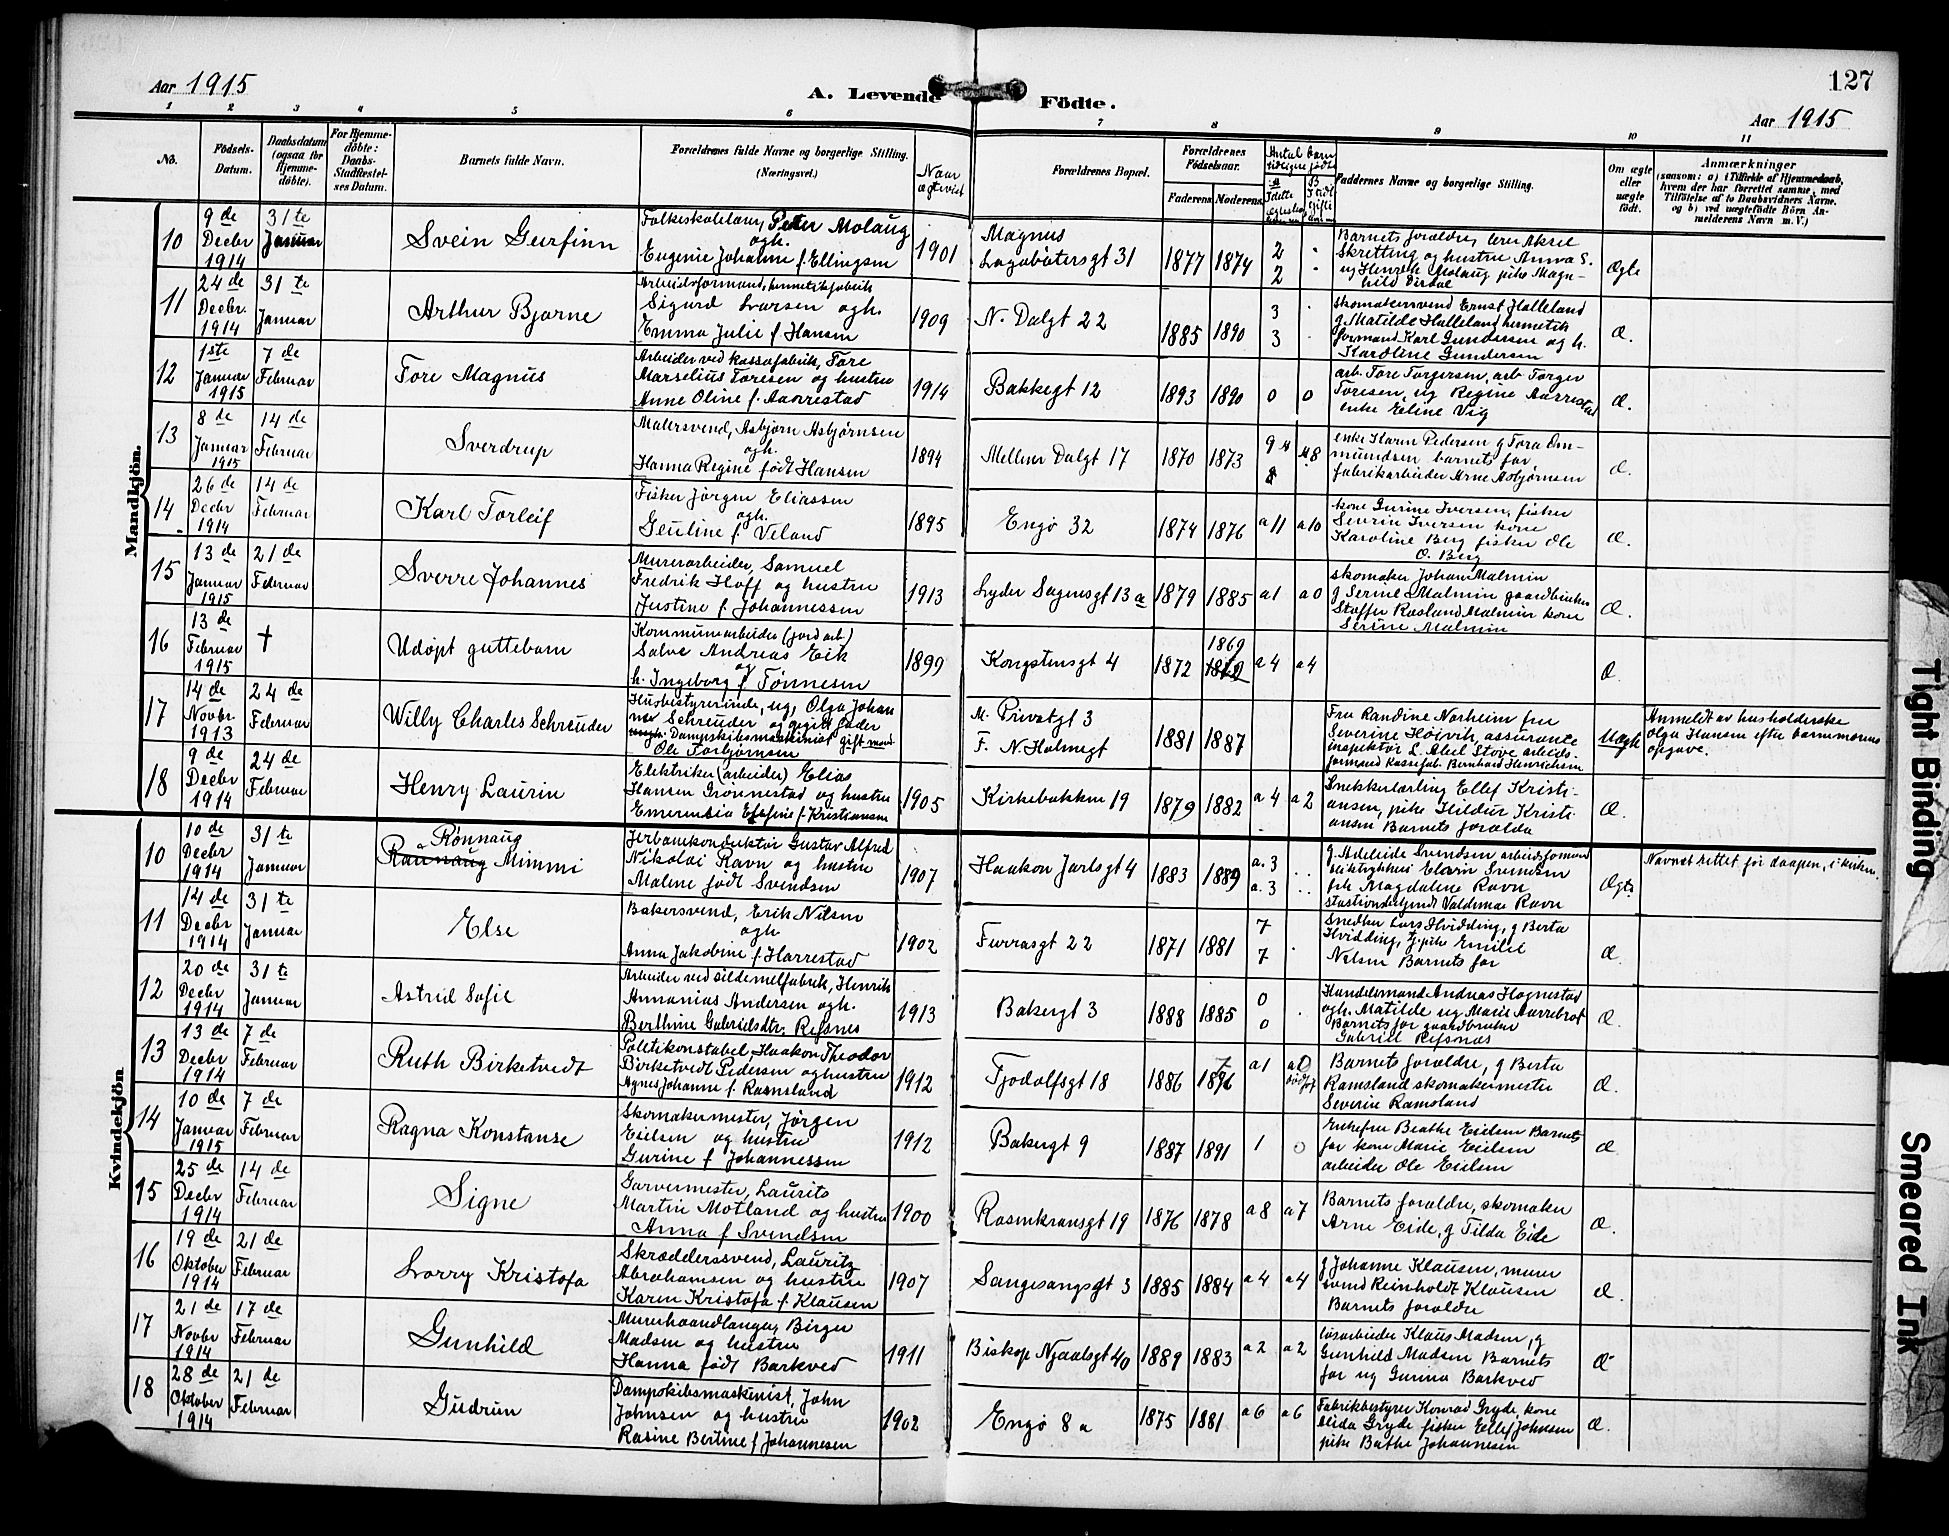 Aar 1915
A. Levende Födte.
127
Aar 1915
1 2 3 4 5 6 7 8 9 10 11
No.
Födsels-
Datum.
Daabsdatum
(ogsaa for
Hjemme-
döbte).
For Hjemme-
döbte:
Daabs-
Stadfæstel-
ses Datum.
Barnets fulde Navn.
Forældrenes fulde Navne og borgerlige Stilling.
(Næringsvei.)
Naar
egteviet
Forældrenes Bopæl.
Forældrenes
Födselsaar.
Faderens
Moderens
Antal barn
tidligere födte
Faddernes Navne og borgerlige Stilling.
Om ægte
eller
uægte
födt.
Anmærkninger
(saasom: a) i Tilfælde af Hjemmedaab,
hvem der har forrettet samme, med
Tilföielse af to Daabsvidners Navne.
og b) ved uægtefödte Börn An-
melderens Navn m. V.)
Mandkjön.
10
9 de
Decbr
1914
31 te
Januar
Svein Gurfinn
Folkeskolelærer, Peter Molaug
ogh.
Eugenie Johanne f. Ellingsen
1901
Magnus
Lagabøtersgt 31
1877
1874
2
2
Barnets forældre, lærer Aksel
Skretting og hustru Anna S.
ug Henrik Molaug pike Magn-
hild Dirdal
Ægte
11
24 de
Decbr.
1914
31 te
Januar
Arthur Bjarne
Arbeidsformand, hermetikfabrik
Sigurd Larsen ogh.
Emma Julie f. Hansen
1909
N. Dalgt 22
1885
1890
3
3
skomakersvend Ernst Halleland
g Matilde Halleland hermetik
formand Karl Gundersen og h.
Karoline Gundersen
Æ.
12
1ste
Januar
1915
7 de
Februar
Tore Magnus
Arbeider ved kassefabrik, Tore
Marselius Toresen og hustru
Anne Oline f. Aarrestad
1914
Bakkegt 12
1893
1890
0
0
arb. Tore Torgersen, arb Torger
Toresen, ug Regine Aarrestad
enke Eline Vig
Æ.
13
8 de
Januar
1915
14 de
Februar
Sverdrup
Malersvend, Asbjørn Asbjørnsen
ogh.
Hanna Regine født Hansen
1894
Mellem Dalgt 17
1870
1873
9
8
8
enke Karen Pedersen g Tora Om-
mundsen barnets far
fabrikarbeider Arne Asbjørnsen
Æ.
14
26 de
Decbr
1914
14 de
Februar
Karl Torleif
Fisker Jörgen Eliassen
ogh.
Geuline f. Veland
1895
Engø 32
1874
1876
a 11
a 10
kone Gurine Iversen, fisker
Severin Iversen kone
Karoline Berg fisker Ole
O. Berg
Æ.
15
13 de
Januar
1915
21 de
Februar
Sverre Johannes
Murerarbeider, Samuel
Fredrik Hoff og hustru
Justine f. Johannessen
1913
Lyder Sagensgt 13 a
1879
1885
a 1
a 0
skomaker Johan Malmin
g Serine Malmin gaardbruker
Staffen Rasland Malmin kone
Serine Malmin
Æ.
16
13 de
Februar
1915
†
Udøpt guttebarn
Kommunearbeider (jord arb)
Salve Andreas Eik
og
h. Ingeborg f Tønnesen
1899
Kongstensgt 4
1872
1869
a 4
a 4
Æ.
17
14 de
Novbr
1913
24 de
Februar
Willy Charles Schreuder
Husbestyrerinde, ug, Olga Johan
ne Schreuder og opgit fader
Dampskibsmaskinist gift mand
Ole Torbjørnsen
M. Privatgt 3
F. N. Holmegt
1881
1887
Fru Randine Norheim fru
Severine Høivik, assurance
inspektør L. Abel Stove arbeids-
formand Kassefab. Bernhard Henrichsen
Uægte
Anmeldt av husholderske
Olga Hansen efter barnemorens
opgave.
18
9 de
Decbr
1914
24 de
Februar
Henry Laurin
Elektriker (arbeider) Elias
Hansen Grønnestad og hustru
Emerensia Efefine f. Kristiansen
1905
Kirkebakken 19
1879
1882
a 4
a 2
Snekkerlærling Ellef Kristi-
ansen, pike Hildur Kristi-
ansen Barnets forældre
Æ.
Kvindekjön
10
10 de
Decbr
1914
31 te
Januar
Rønnaug
Rannaug Mimmi
Jerbanekonduktør Gustav Alfred
Nikolai Ravn og hustru
Malene født Svendsen
1907
Haakon Jarlsgt 4
1883
1889
a. 3
a. 3
g. Adeleide Svendsen arbeidsformand
elektrykker Edvin Svendsen
frk Magdalene Ravn
stastionsbetjent Valdemar Ravn
Ægte
Navnet rettet før daapen, i kirken.
11
14 de
Decbr
1914
31 te
Januar
Else
Bakersvend, Erik Nilsen
ogh
Anna Jakobine f. Harrestad
1902
Furrasgt 22
1871
1881
7
7
Snedker Lars Hvidding, g Berta
Hvidding, tj.pike Emilie
Nilsen Barnets far
Æ.
12
20 de
Decbr
1914
31 te
Januar
Astrid Sofie
Arbeider ved sildemelfabrik, Henrik
Annanias Andersen ogh.
Berthine Gabrielsdtr. Refsnes
1913
Bakergt 3
1888
1885
0
0
Handelsmand Andreas Hognestad
ogh. Matilde ug Marie Aarrebrot
Barnets far gaardbruker
Gabriel Refsnæs
Æ.
13
13 de
Decbr
1914
7 de
Februar
Ruth Birketvedt
Politikonstabel, Haakon Theodor
Birketvedt Pedersen og hustru
Agnes Johanne f. Ramsland
1912
Tjodolfsgt 18
1886
1896
a 1
Barnets forældre, g Berta
Ramsland skomakermester
Severin Ramsland
Æ.
14
10 de
Januar
1915
7 de
Februar
Ragna Konstanse
Skomakermester, Jørgen
Eielsen og hustru
Gurine f Johannessen
1912
Bakergt 9
1887
1891
1
0
Enkefru Beathe Eielsen Barnets
far kone Marie Eielsen
arbeider Ole Eielsen
Æ.
15
25 de
Decbr
1914
14 de
Februar
Signe
Garvermester, Laurits
Martin Motland og hustru
Anna f Svendsen
1900
Rosenkransgt 19
1876
1878
a 8
a 7
Barnets forældre, skomaker
Arne Eide, g Tilda Eide
Æ.
16
19 de
Oktober
1914
21 de
Februar
Lorry Kristofa
Skræddersvend, Lauritz
Abrahamsen og hustru
Karen Kristofa f. Klausen
1907
Sangesangsgt 3
1885
1884
a 4
a 4
g Johanne Klausen, murer
svend Reinholdt Klausen
Barnets forældre
Æ.
17
21 de
Novbr
1914
17 de
Februar
Gunhild
Murerhaandlanger, Birger
Madsen og hustru
Hanna født Barkved
1911
Biskop Njaalsgt 40
1889
1883
a 2
a 2
løsarbeider Klaus Madsen, g
Gunhild Madsen Barnets
far ug Gunna Barkved
Æ
18
28 de
Oktober
1914
21 de
Februar
Gudrun
Dampskibsmaskinist, John
Johnsen og hustru
Rasine Bertine f Johannesen
1902
Engø 8 a
1875
1881
a 6
a 6
Fabrikbestyrer Konrad Gryde, kone
Elida Gryde fisker Ellef Johnsen
pike Bathe Johannesen
Æ.
Tight Binding
Smeared Ink